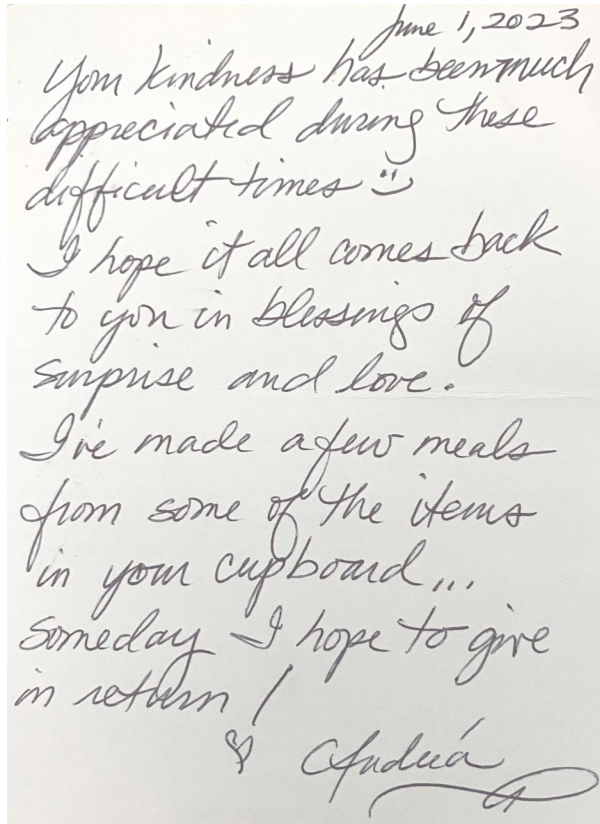 June 1, 2023
Your kindness has been much
appreciated during these
difficult times
I hope it all comes back
to you in blessings of
surprise and love.
I've made a few meals
from some of the items
in your cupboard...
Someday I hope to give
in return!
Andreá